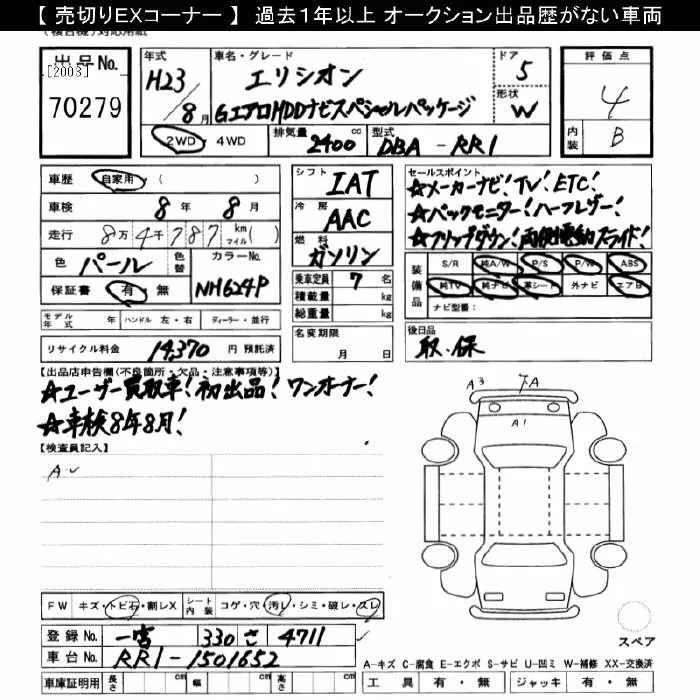 【 売切りEXコーナー 】 過去1年以上 オークション出品歴がない車両
出品No. [2003] 70279
年式 H23/8月
車名・グレード エリシオン
GエアロHDDナビスペシャルパッケージ
ドア 5
形状 W
評価点 4
内装 B
2WD・4WD 排気量 2400cc 型式 DBA-RR1
車歴 自家用 ( )
車検 8年 8月
走行 8万4千787 km マイル ( )
色 パール 色替 カラーNo. NH624P
保証書 有・無
モデル年式 年 ハンドル 左・右 ディーラー・並行
リサイクル料金 14,370 円 預託済
シフト IAT
冷房 AAC
燃料 ガソリン
乗車定員 7 名
積載量 kg
総重量 kg
名変期限 月 日
セールスポイント
☆メーカーナビ!TV!ETC!
☆バックモニター!ハーフレザー!
☆フリップダウン!両側電動スライド!
装備品 S/R 純A/W P/S P/W ABS
純TV 純ナビ 革シート 外ナビ エアB
ナビ型番:
後日品
取・保
【出品店申告欄(不良箇所・欠品・注意事項等)】
☆ユーザー買取車!初出品!ワンオーナー!
☆車検8年8月!
【検査員記入】
A3 A
A1
FW キズ・トビ石・割レX シート内装 コゲ・穴・汚レ・シミ・破レ・スレ
登録No. 一宮 330 さ 4711
車台No. RR1-1501652
車庫証明用 長さ cm 幅 cm 高さ cm
スペア
A-キズ C-腐食 E-エクボ S-サビ U-凹ミ W-補修 XX-交換済
工具 有・無 ジャッキ 有・無